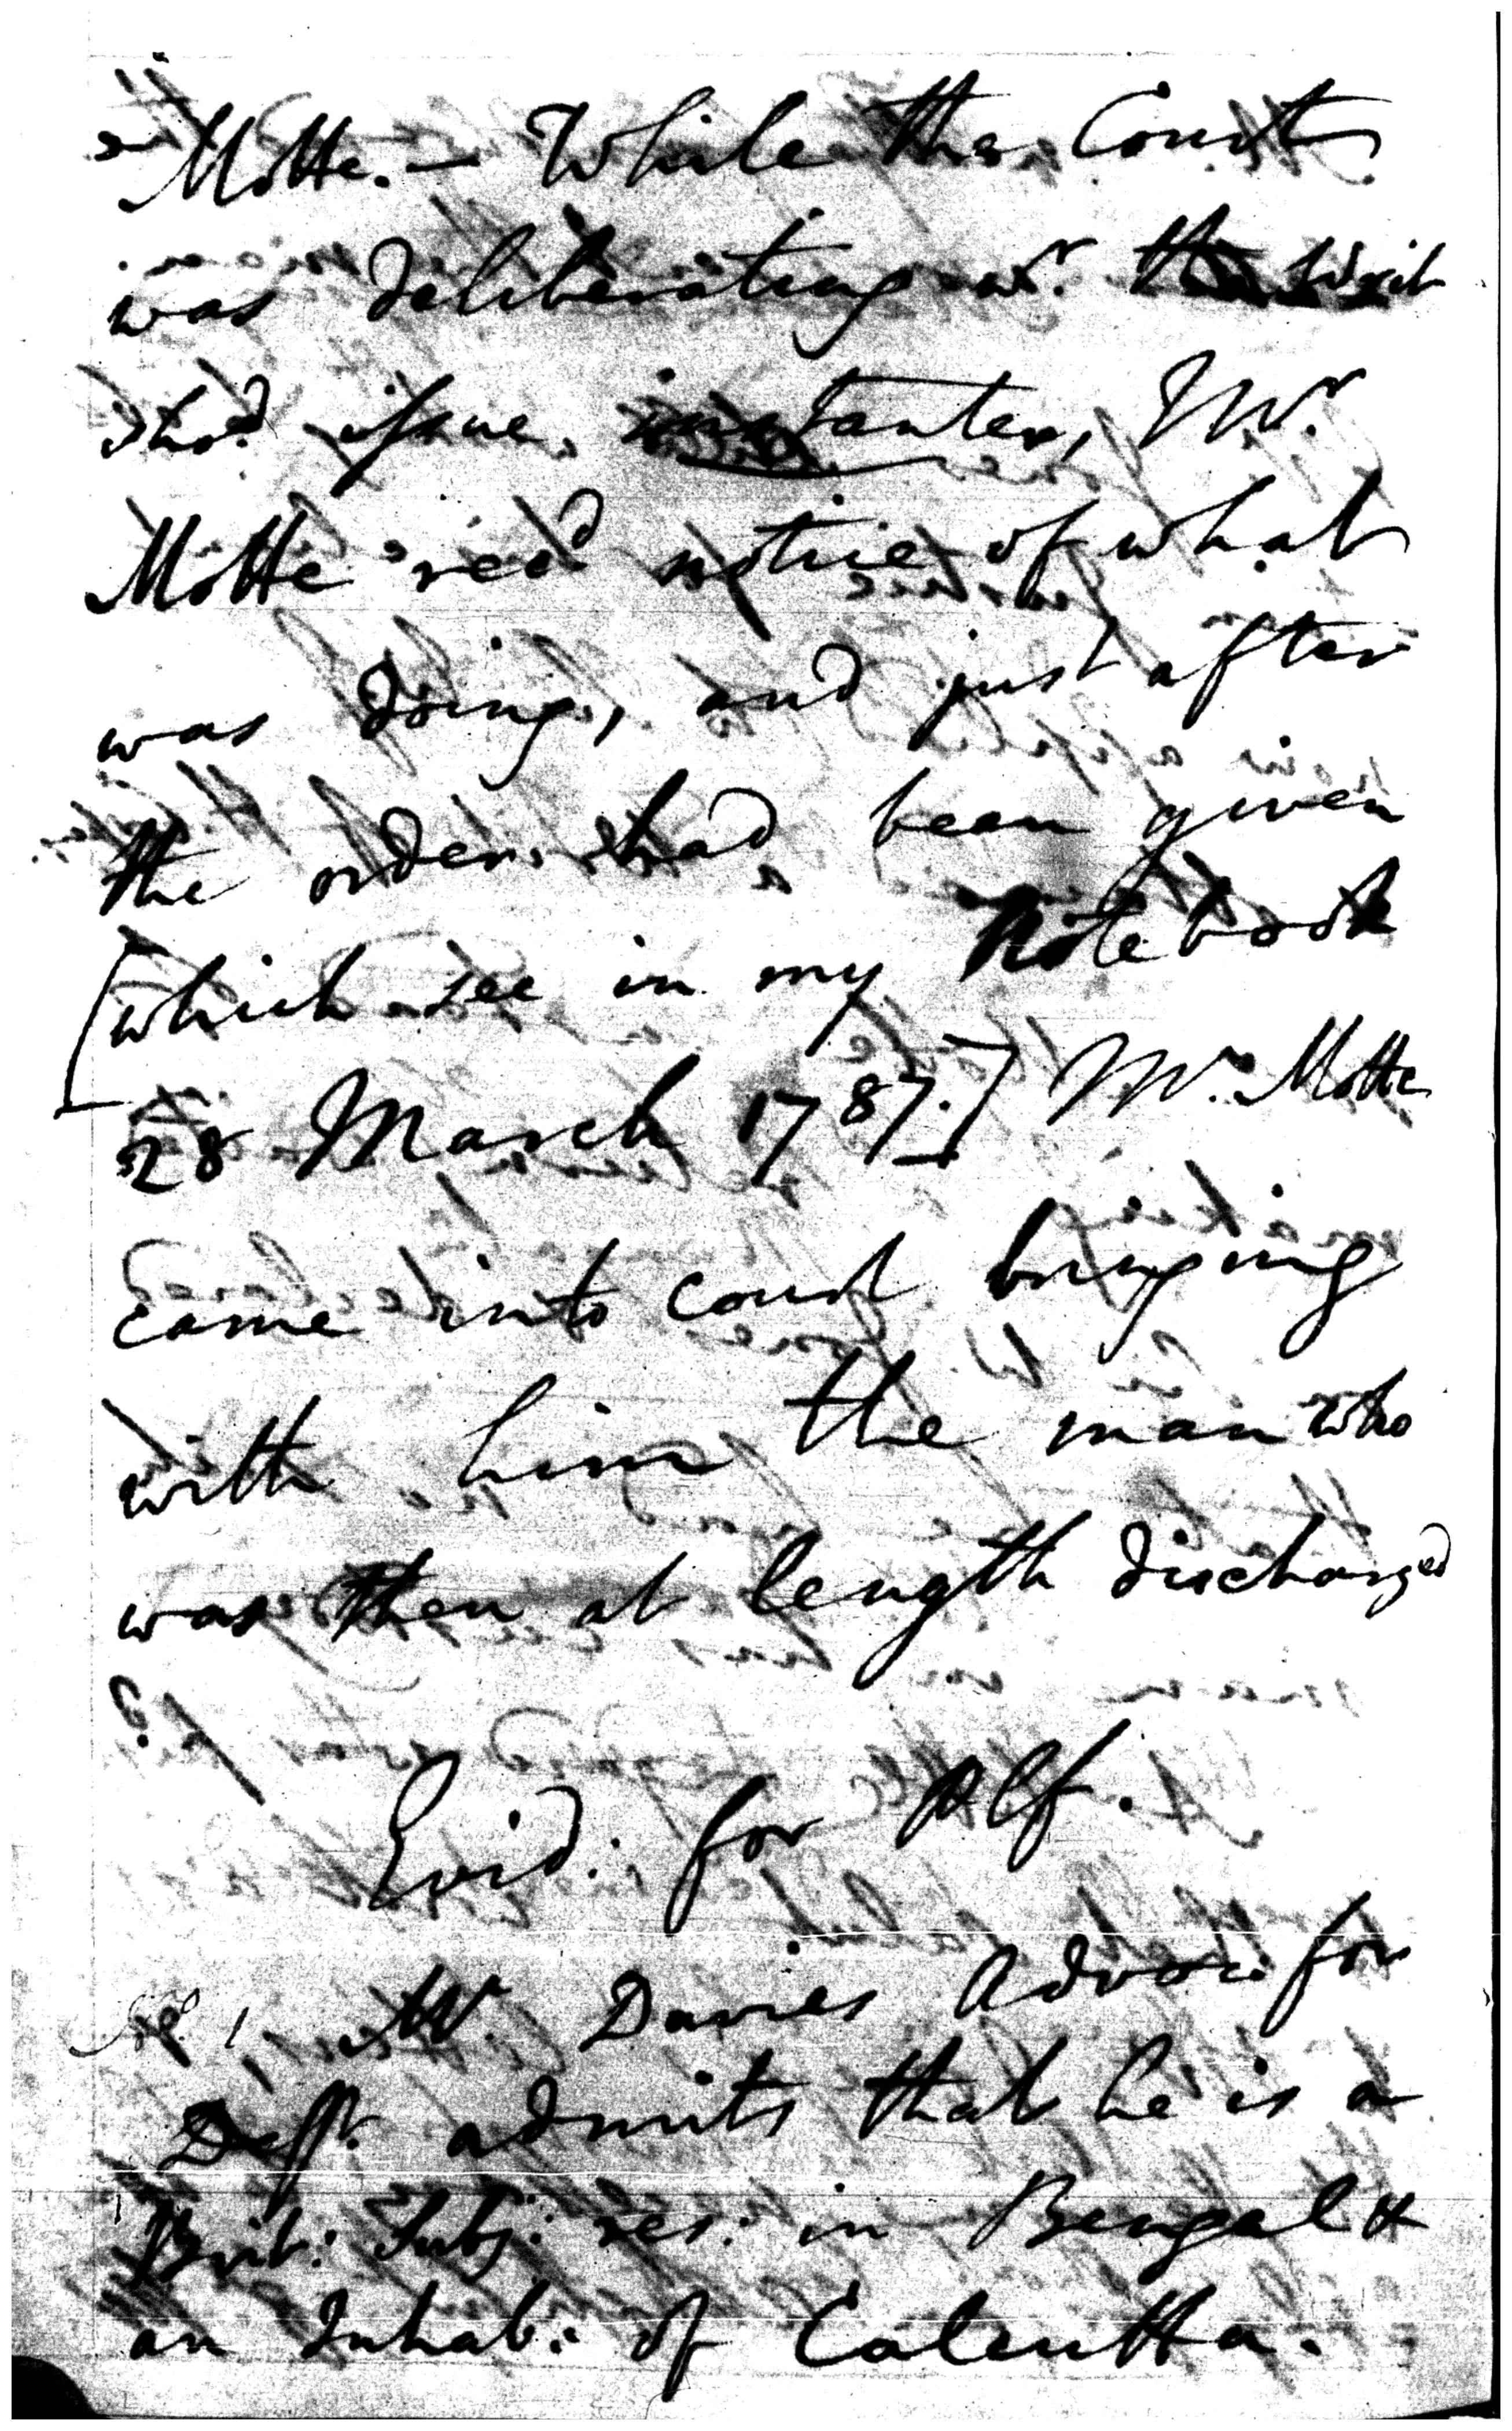 Motte. — While the Court
was deliberating wr. the writ
shod. issue instanter, Mr.
Motte recd. notice of what
was doing, and just after
the order had been given
[which see in my Notebook
28 March 1787.] Mr. Motte
came into court bringing
with him the man who
was then at length discharged
Evid. for Plf.
1, Mr. Davies Advoc. for
Defft. admits that he is a
Brit: Subj: res: in Bengal &
an Inhab: of Calcutta.